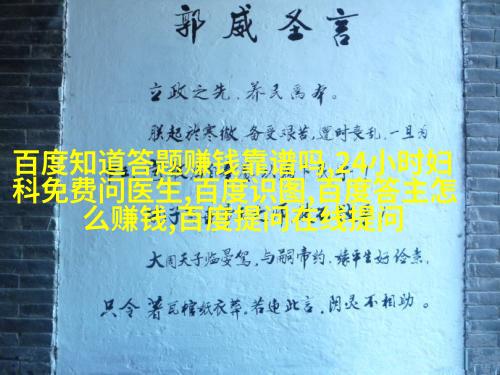 郭威圣言
立政之先,养民为本。
朕起于寒微,备受艰苦,遭时丧乱,一旦为
百度知道答题赚钱靠谱吗,24小时妇
科免费问医生,百度识图,百度答主怎
么赚钱,百度提问在线提问
大周天子临晏驾,与嗣帝约,缘平生好俭素,
只令著瓦棺纸衣葬。若违此言,阴灵不相助。